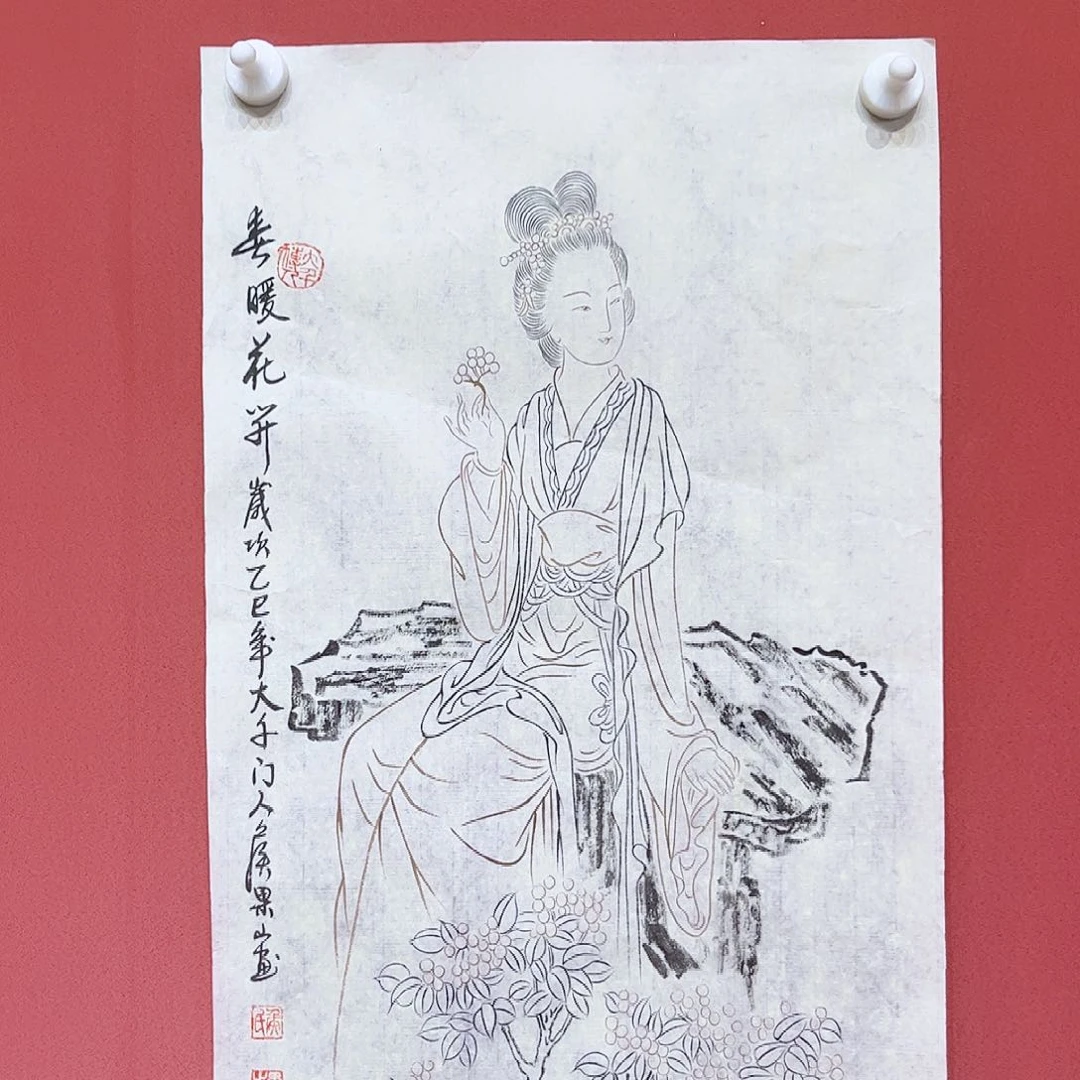 春暖花开岁次乙巳年大千门人侯果山画